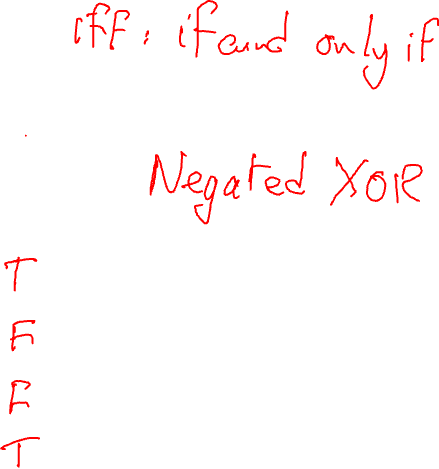 iff : if and only if
Negated XOR
T
F
F
T